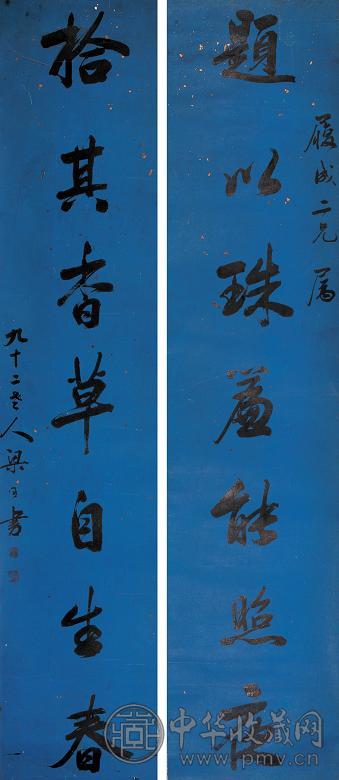 履成二兄屬
題以珠能照
拾其香草自生春
九十二老人梁同書
中华收藏网
www.pmv.cn